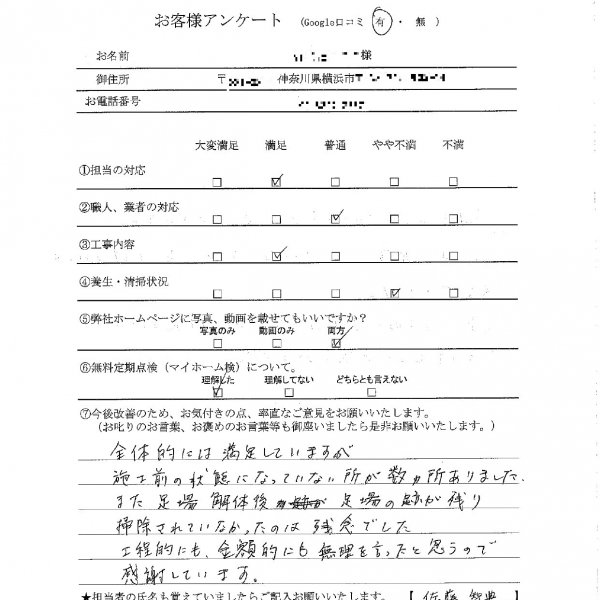 お客様アンケート (Google口コミ 有 ・ 無 )
お名前 様
御住所 〒 神奈川県横浜市
お電話番号
大変満足 満足 普通 やや不満 不満
①担当の対応 □ ☑ □ □ □
②職人、業者の対応 □ □ ☑ □ □
③工事内容 □ ☑ □ □ □
④養生・清掃状況 □ □ □ ☑ □
⑤弊社ホームページに写真、動画を載せてもいいですか?
写真のみ 動画のみ 両方
□ □ ☑
⑥無料定期点検(マイホーム検)について。
理解した 理解してない どちらとも言えない
☑ □ □
⑦今後改善のため、お気付きの点、率直なご意見をお願いいたします。
(お叱りのお言葉、お褒めのお言葉等も御座いましたら是非お願いします。)
全体的には満足していますが
施工前の状態になっていない所が数ヵ所ありました。
また足場解体後 足場の跡が残り
掃除されていなかったのは残念でした
工程的にも、金額的にも無理を言ったと思うので
感謝しています。
★担当者の氏名も覚えていましたらご記入お願いいたします。 【 佐藤